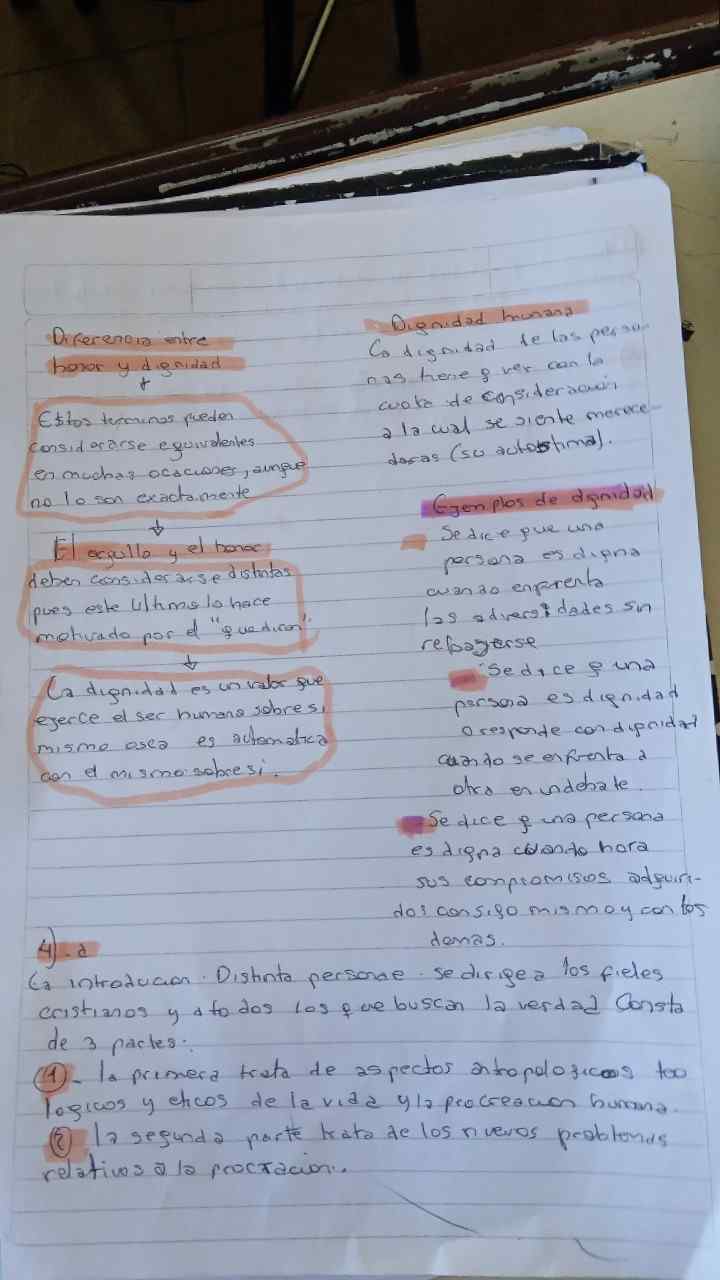 Diferencia entre
honor y dignidad
Estos terminos pueden
considerarse equivalentes
en muchas ocaciones, aunque
no lo son exactamente
El orgullo y el honor
deben considerarse distintas
pues este ultimo lo hace
motivado por el "que diran".
La dignidad es un valor que
ejerce el ser humano sobre si
mismo osea es automatica
con el mismo sobre si.
Dignidad humana
La dignidad de las perso-
nas tiene q ver con la
cuota de consideracion
a la cual se siente merece-
doras (su autoestima).
Ejemplos de dignidad
Se dice que una
persona es digna
cuando enfrenta
las adversidades sin
rebajerse
Se dice q una
persona es dignidad
o responde con dignidad
cuando se enfrenta a
otra en un debate.
Se dice q una persona
es digna cuando hora
sus compromisos adquiri-
dos consigo mismo y con los
demas.
4).a
La introducion. Distinta personae. se dirige a los fieles
cristianos y a todos los que buscan la verdad Consta
de 3 partes:
1- la primera trata de aspectos antropologicos teo
logicos y eticos de la vida y la procreacion humana.
2 la segunda parte trata de los nuevos problemas
relativos a la procracion.